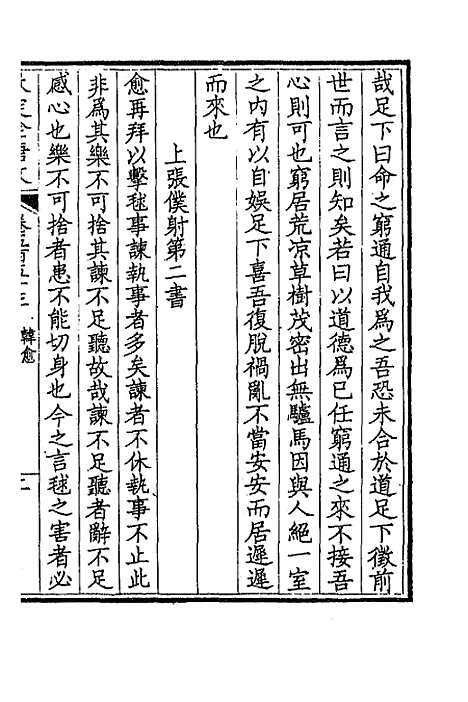 哉足下曰命之窮通自我為之吾恐未合於道足下徵前
世而言之則知矣若曰以道德為已任窮通之來不接吾
心則可也窮居荒凉草樹茂密出無驢馬因與人絕一室
之內有以自娛足下喜吾復脫禍亂不當安安而居遲遲
而來也
上張僕射第二書
愈再拜以擊毬事諫執事者多矣諫者不休執事不止此
非為其樂不可捨其諫不足聽故哉諫不足聽者辭不足
感心也樂不可捨者患不能切身也今之言毬之害者必
韓愈